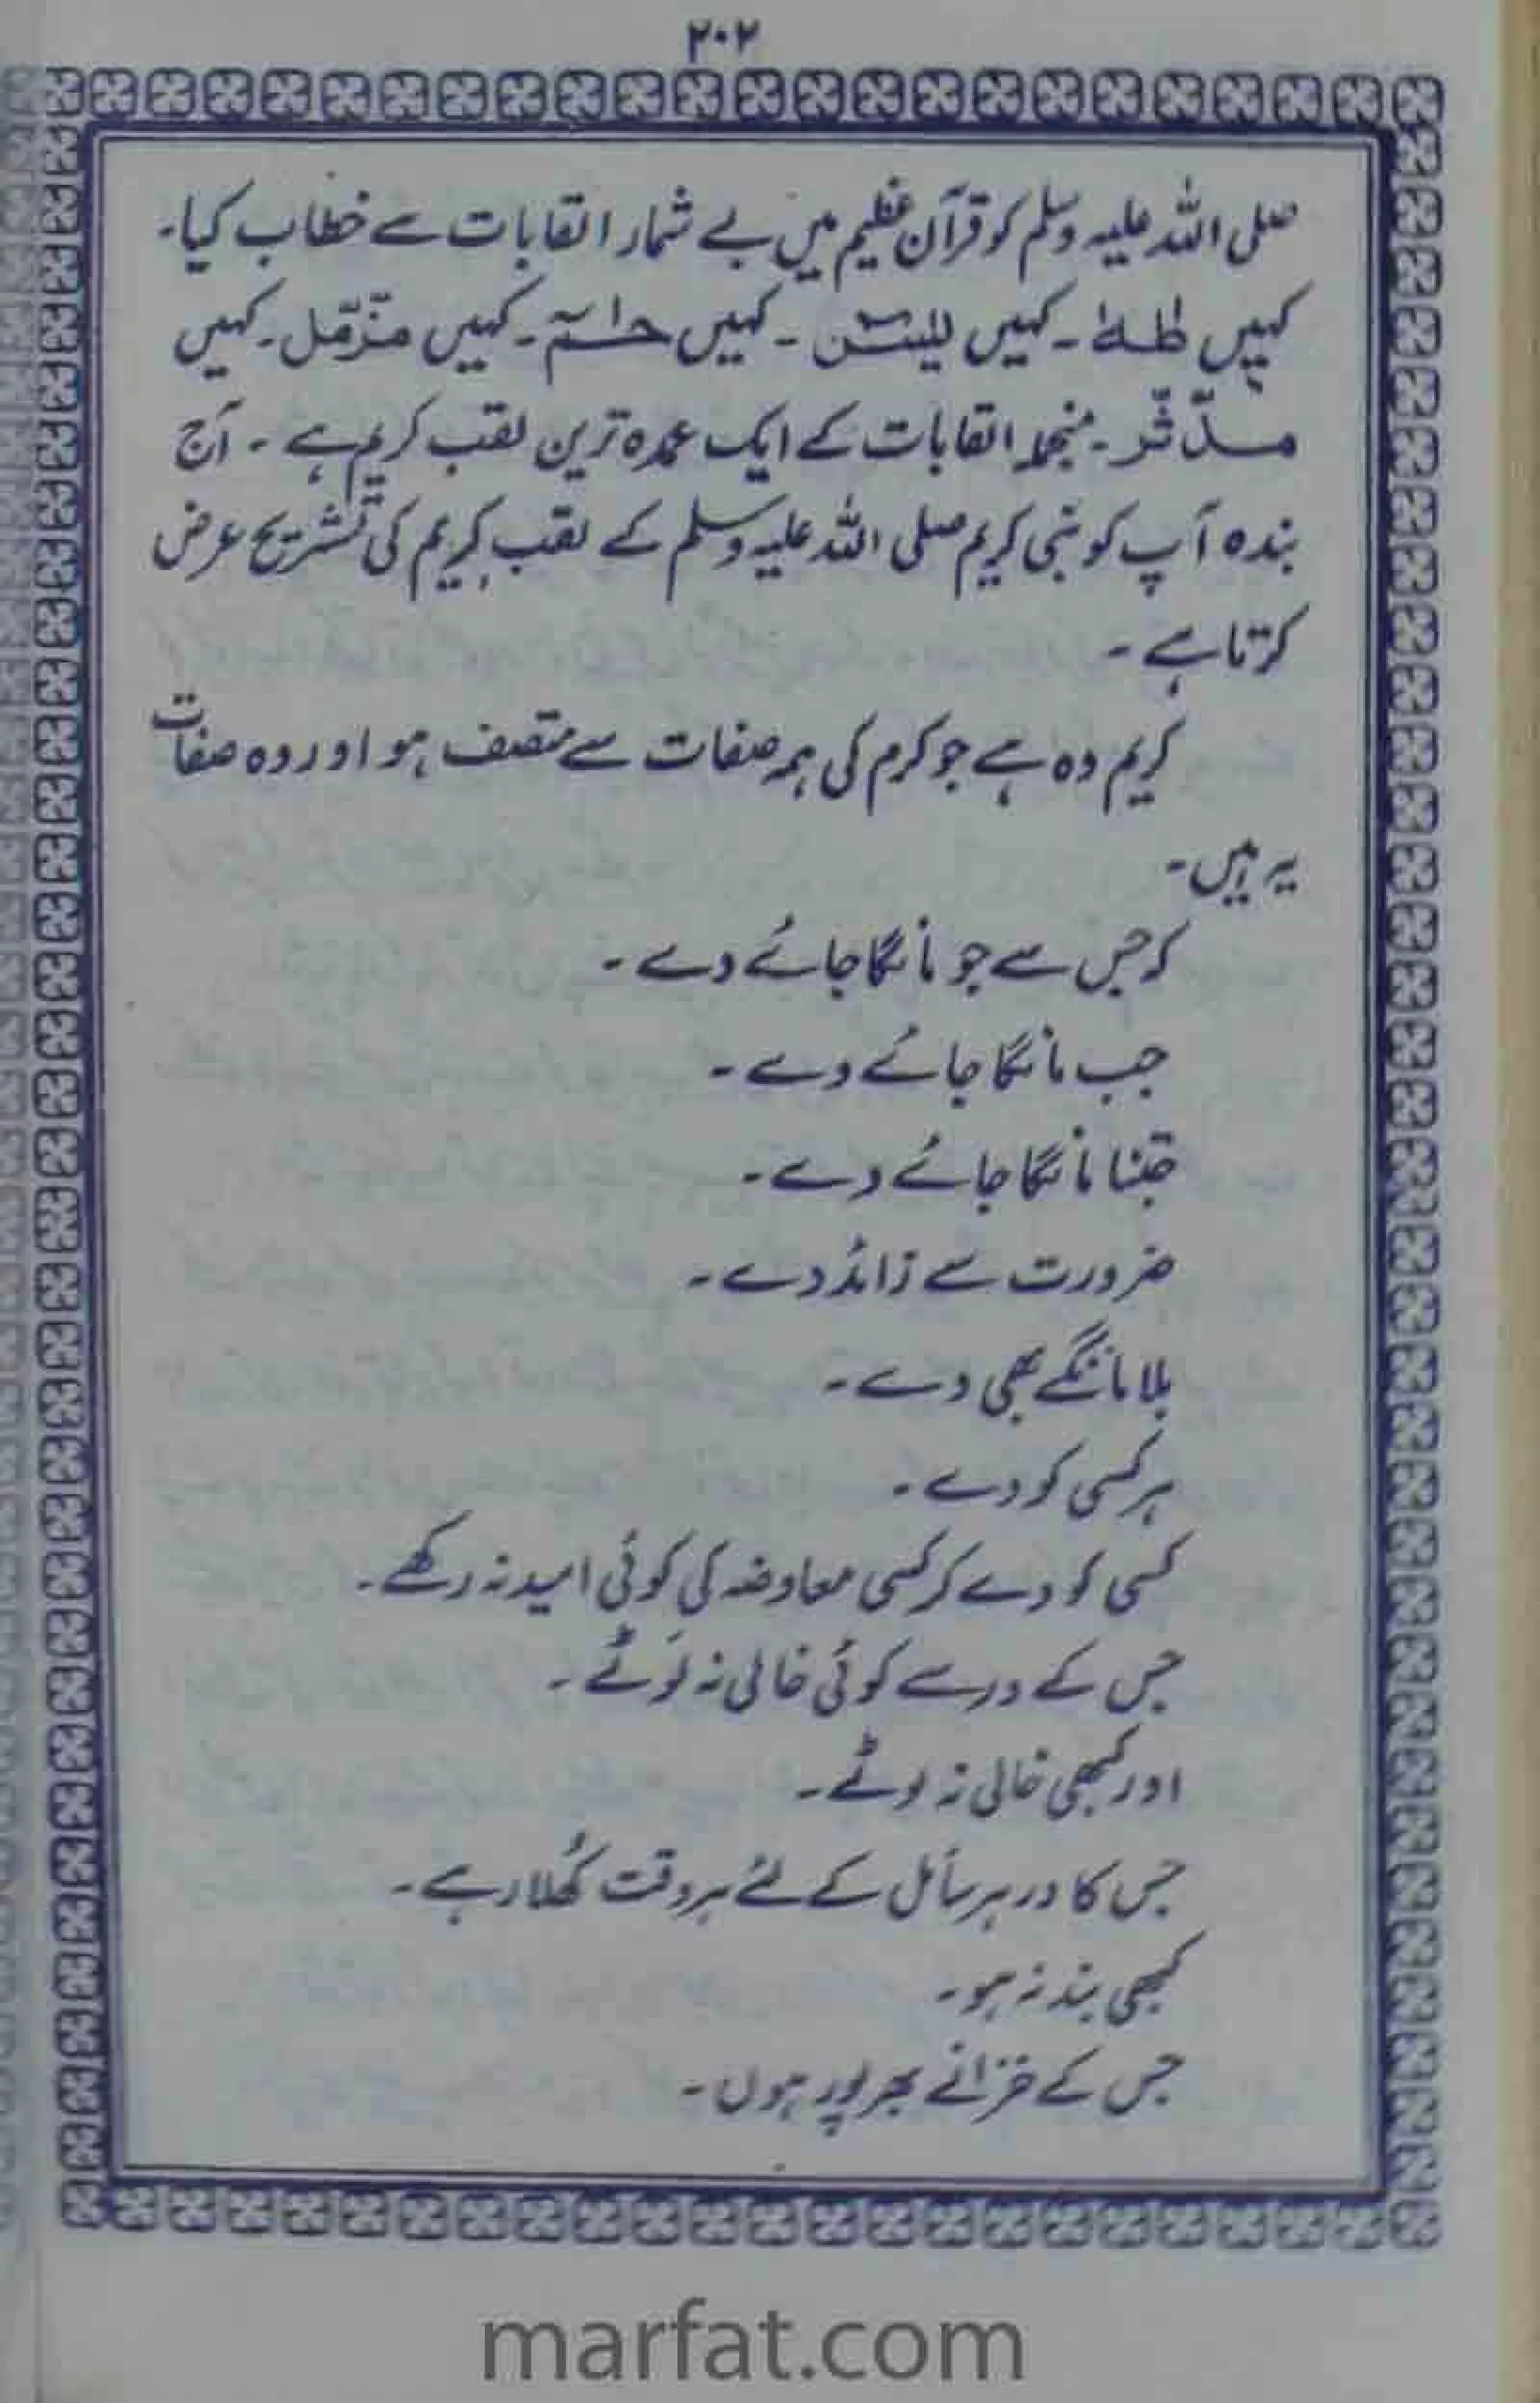 ۲۰۲
صلی اللہ علیہ وسلم کو قرآن عظیم میں بے شمار القابات سے خطاب کیا۔
کہیں طٰهٰ ۔ کہیں یٰسٓ ۔ کہیں حٰمٓ ۔ کہیں مزّمّل ۔ کہیں
مدّثّر ۔ منجملہ القابات کے ایک عمدہ ترین لقب کریم ہے ۔ آج
بندہ آپ کو نبی کریم صلی اللہ علیہ وسلم کے لقب کریم کی تشریح عرض
کرتا ہے ۔
کریم وہ ہے جو کرم کی ہمہ صفات سے متصف ہو اور وہ صفات
یہ ہیں ۔
کہ جس سے جو مانگا جائے دے ۔
جب مانگا جائے دے ۔
جتنا مانگا جائے دے ۔
ضرورت سے زائد دے ۔
بلا مانگے بھی دے ۔
ہر کسی کو دے ۔
کسی کو دے کر کسی معاوضہ کی کوئی امید نہ رکھے ۔
جس کے در سے کوئی خالی نہ لَوٹے ۔
اور کبھی خالی نہ لوٹے ۔
جس کا در ہر سائل کے لئے ہر وقت کُھلا رہے ۔
کبھی بند نہ ہو ۔
جس کے خزانے بھرپور ہوں ۔
marfat.com